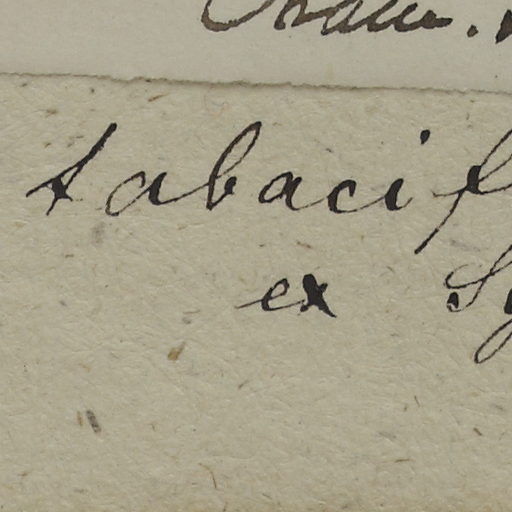 tabacif
ex Sy